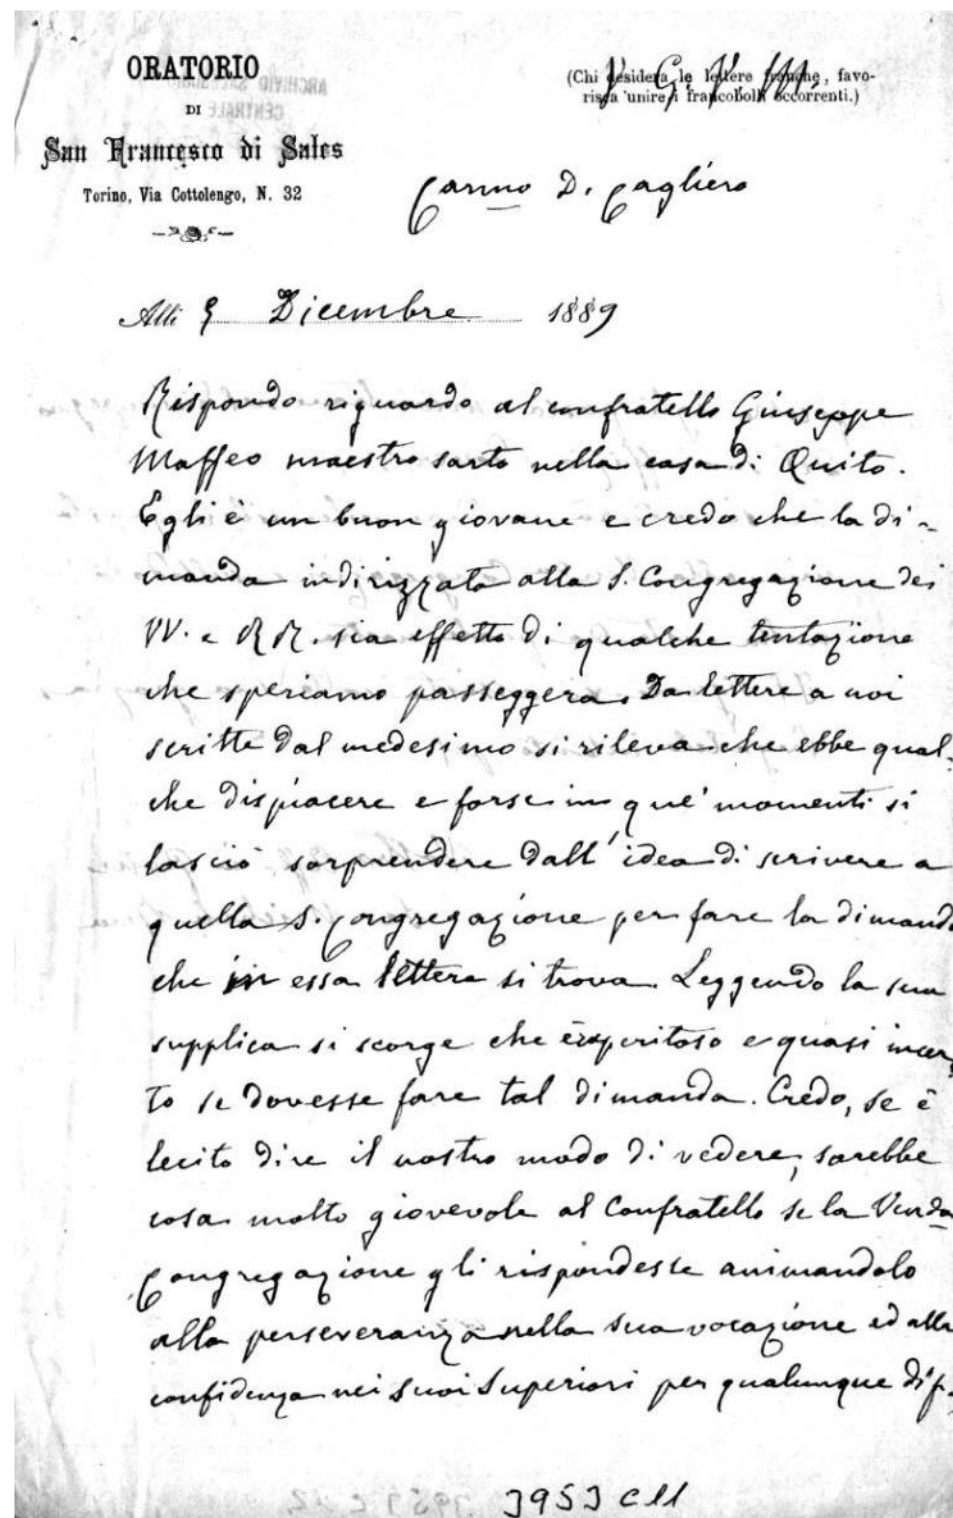 ORATORIO
DI
San Francesco di Sales
Torino, Via Cottolengo, N. 32
ARCHIVIO
CENTRALE
(Chi desidera le lettere franche, favo-
risca unire i francobolli occorrenti.)
V. G. V. M.
Carmo D. Cagliero
Alli 5 Dicembre 1889
Rispondo riguardo al confratello Giuseppe
Maffeo maestro sarto nella casa di Quito.
Egli è un buon giovane e credo che la di-
manda indirizzata alla S. Congregazione dei
VV. e RR. sia effetto di qualche tentazione
che speriamo passeggera. Da lettere a noi
scritte dal medesimo si rileva che ebbe qual-
che dispiacere e forse in que' momenti si
lasciò sorprendere dall'idea di scrivere a
quella S. Congregazione per fare la dimanda
che in essa lettera si trova. Leggendo la sua
supplica si scorge che e quasi incer-
to se dovesse fare tal dimanda. Credo, se è
lecito dire il nostro modo di vedere, sarebbe
cosa molto giovevole al Confratello se la Venda
Congregazione gli rispondesse animandolo
alla perseveranza nella sua vocazione ed alla
confidenza nei suoi Superiori per qualunque dif-
3953 C11